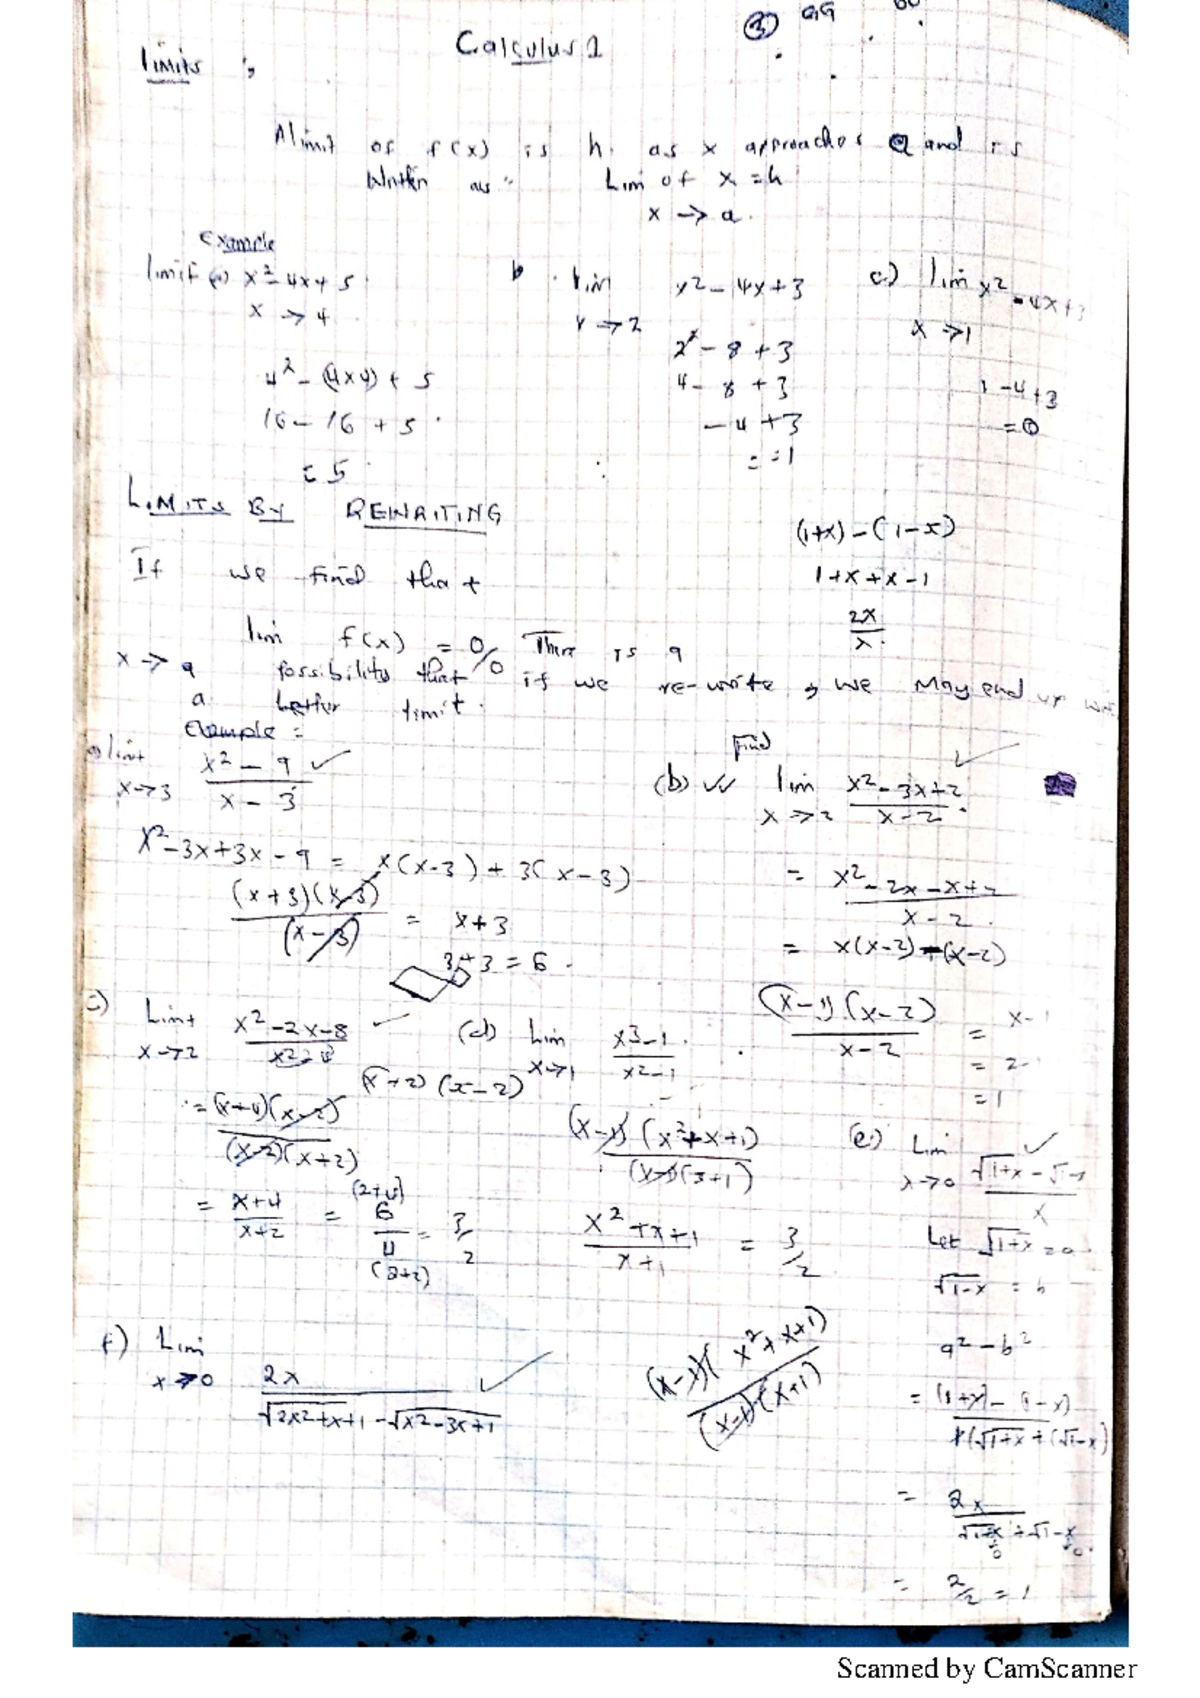 Calculus 1
limits ;
A limit of f(x) is h. as x approaches a and is
Written as: Lim of x = h
x → a.
Example
limit (a) x² - 4x + 5.
x → 4
4² - (4x4) + 5
16 - 16 + 5.
= 5
b. lim x² - 4x + 3
x → 2
2² - 8 + 3
4 - 8 + 3
- 4 + 3
= -1
c) lim x² - 4x + 3
x → 1
1 - 4 + 3
= 0
LIMITS BY REWRITING
(1+x) - (1-x)
1 + x + x - 1
2x
x
If we find that
lim f(x) = 0/0 There is a
x → a possibility that if we re-write, we may end up
a better limit.
Example =
limt x² - 9
x → 3 x - 3
x² - 3x + 3x - 9 = x(x-3) + 3(x-3)
(x+3)(x-3) = x + 3
(x-3)
3 + 3 = 6.
Find
(b) lim x² - 3x + 2
x → 2 x - 2
= x² - 2x - x + 2
x - 2
= x(x-2) - (x-2)
(x-1)(x-2) = x - 1
x - 2
= 2 -
= 1
c) Limt x² - 2x - 8
x → 2
= (x+4)(x-2)
(x-2)(x+2)
(x+2)(x-2)
= x+4 = 6 = 3/2
x+2 4
(2+2)
(d) Lim x³ - 1
x → 1 x² - 1
(x-1)(x²+x+1)
(x-1)(x+1)
x² + x + 1 = 3/2
x + 1
(e) Lim √1+x - √1-x
x → 0 x
Let √1+x = a
√1-x = b
a² - b²
= (1+x) - (1-x)
x(√1+x + (√1-x)
= 2x
√1+x + √1-x
= 2/2 = 1
f) Lim
x → 0 2x
√2x²+x+1 - √x²-3x+1
(x-1)(x²+x+1)
(x-1)(x+1)
Scanned by CamScanner